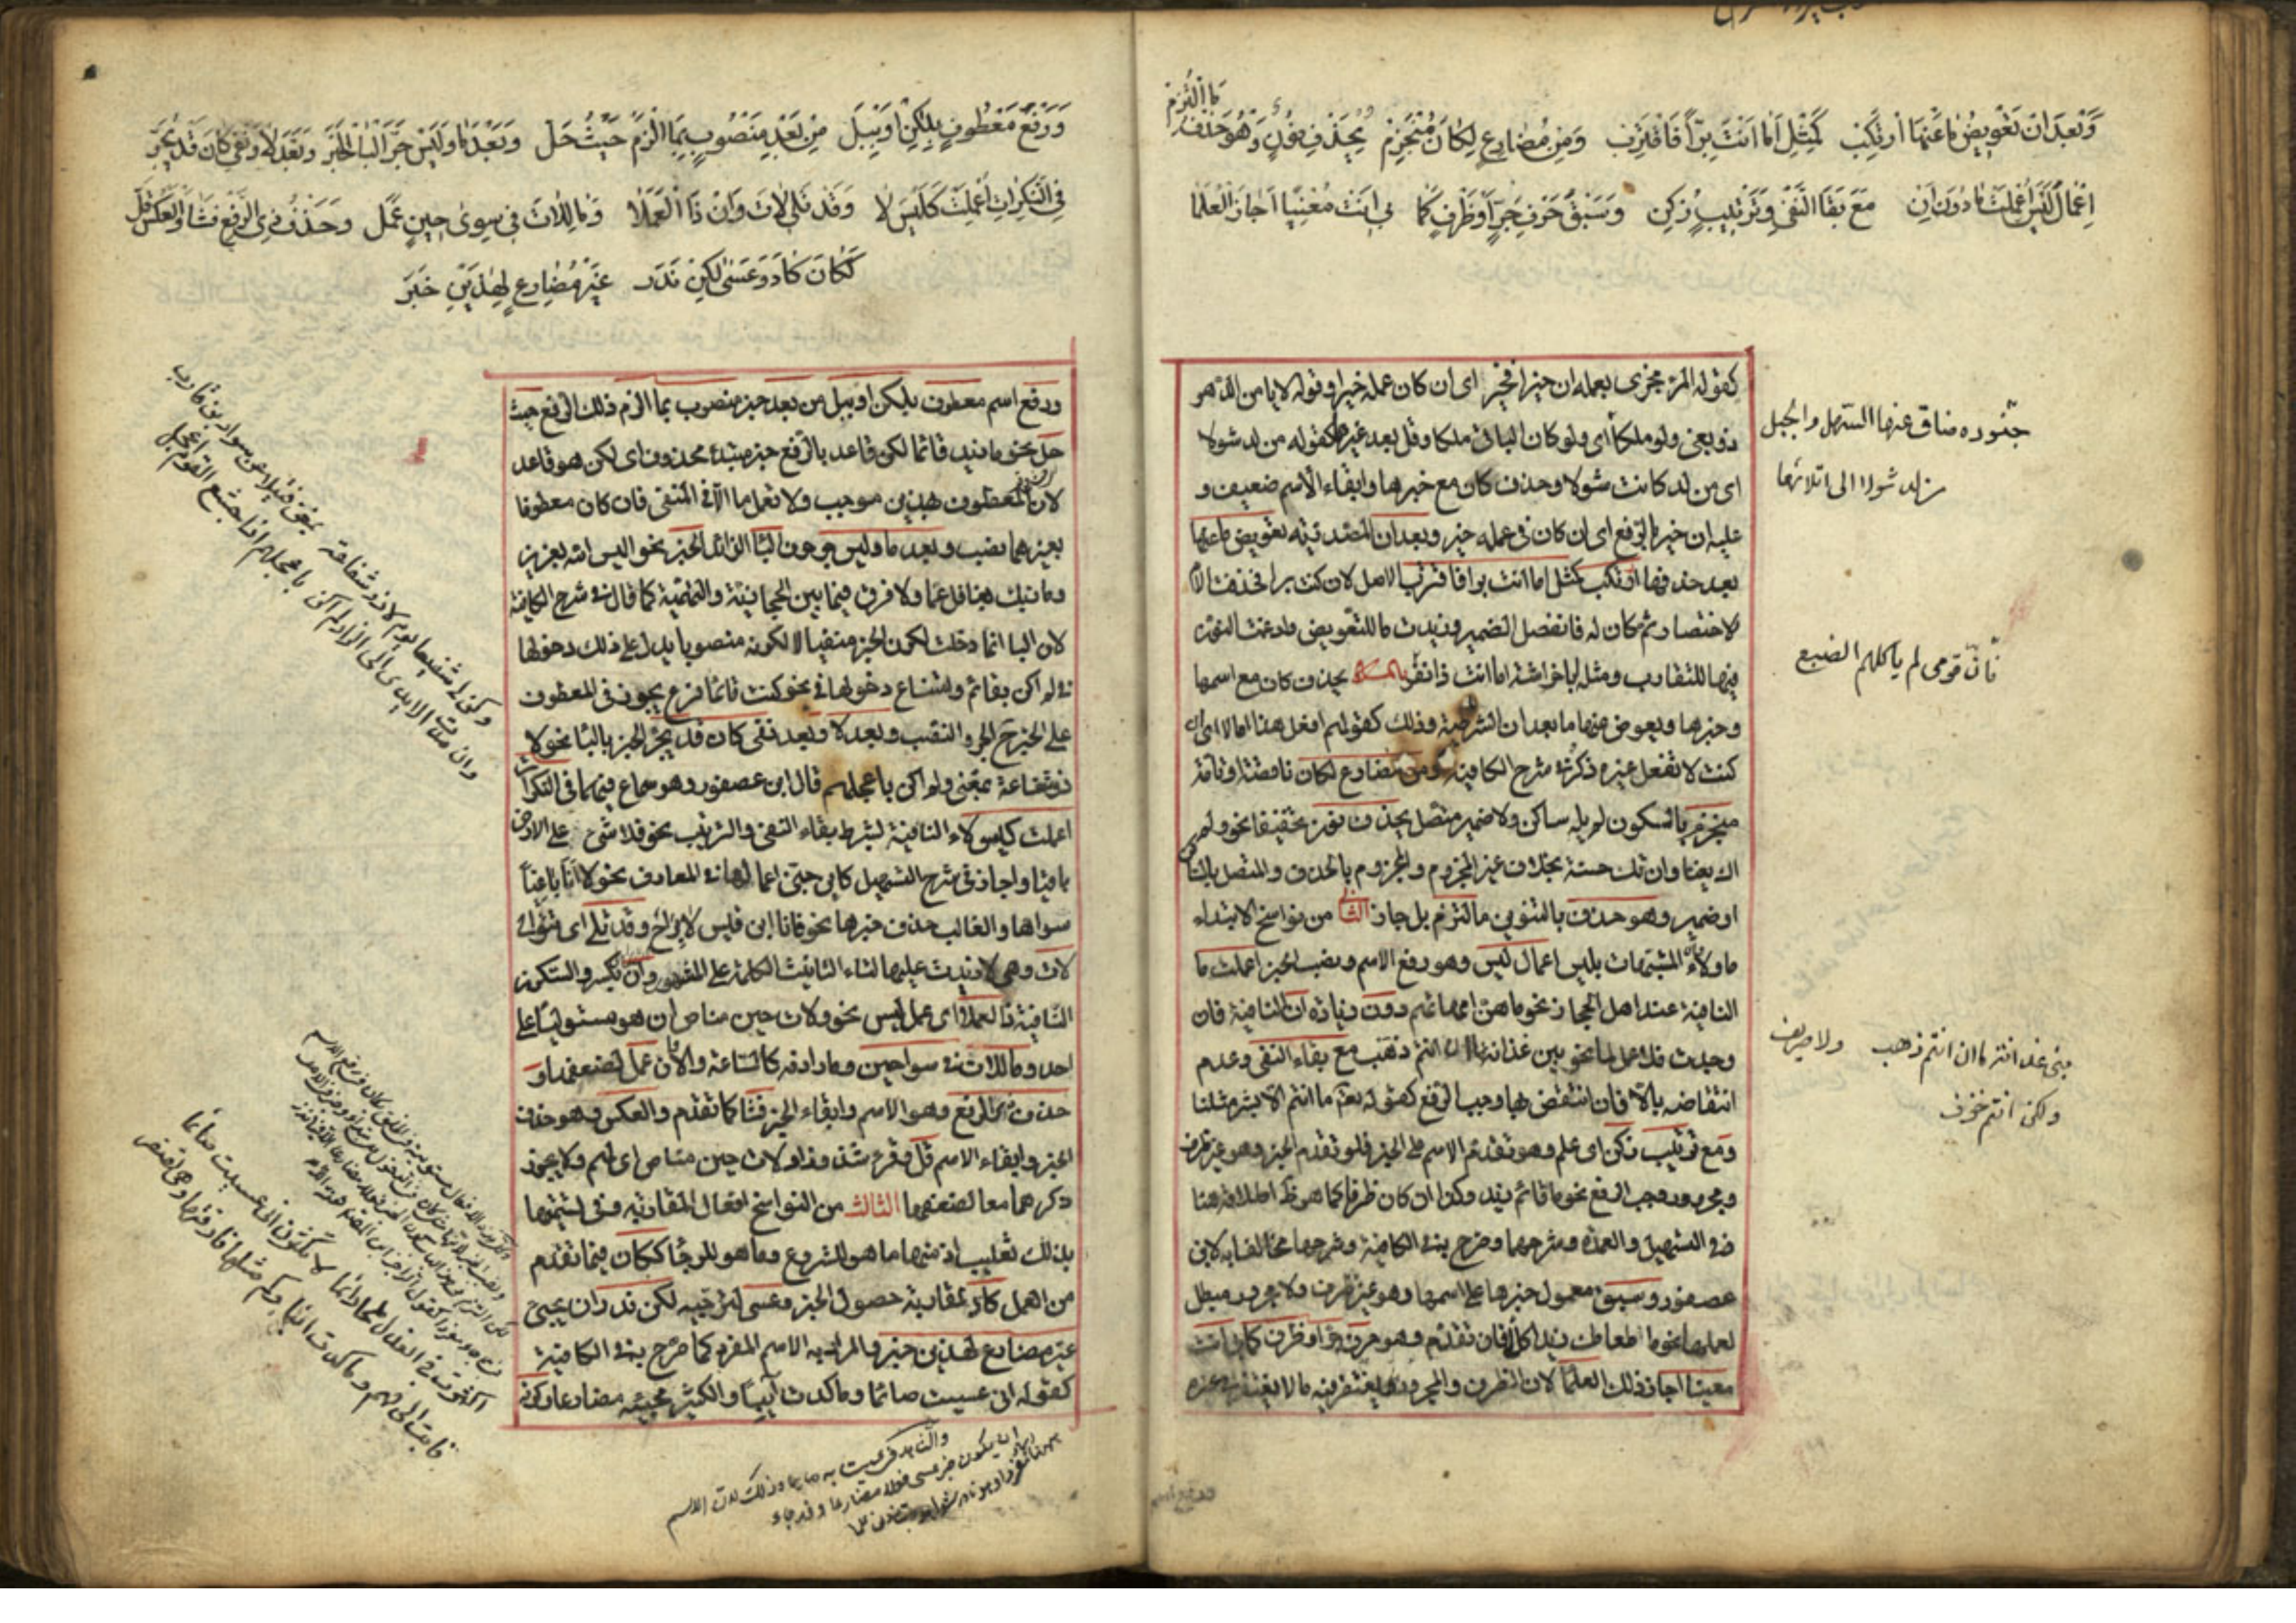 وَبَعْدَ اَنْ تَعْوِيضُ مَا عَنْهَا اُرْتُكِبْ كَمِثْلِ اَمَّا اَنْتَ بَرًّا فَاقْتَرِبْ وَمِنْ مُضَارِعٍ لِكَانَ مُنْجَزِمْ يُحْذَفُ نُونٌ وَهُوَ حَذْفٌ
مَا الْتُزِمْ
اِعْمَالَ لَيْسَ اُعْمِلَتْ مَا دُونَ اِنْ مَعَ بَقَا النَّفْىِ وَتَرْتِيبٍ زُكِنْ وَسَبْقَ حَرْفِ جَرٍّ اَوْ ظَرْفٍ كَمَا بِى اَنْتَ مَعْنِيًّا اَجَازَ الْعُلَمَا
كقوله المرء مجزى بعمله ان خيرا فخير اى ان كان عمله خيرا وقوله لا يامن الدهر
ذو بغى ولو ملكا اى ولو كان الباغى ملكا وقل بعد غيرهما كقوله من لد شولا
اى من لد كانت شولا وحذف كان مع خبرها وابقاء الاسم ضعيف و
عليه ان خير بالرفع اى ان كان فى عمله خير وبعد ان المصدريه تعويض ما عنها
بعد حذفها ارتكب كمثل اما انت برا فاقترب الاصل لان كنت برا فحذفت اللام
للاختصار ثم كان له فانفصل الضمير وزيدت ما للتعويض وادغمت النون
فيها للتقارب ومثله ابا خراشة اما انت ذا نفر بحذف كان مع اسمها
وخبرها ويعوض عنها ما بعد ان الشرطية وذلك كقولهم افعل هذا اما لا اى ان
كنت لا تفعل غيره ذكره فى شرح الكافية ومن مضارع لكان ناقصة وتامة
منجزم بالسكون لم يله ساكن ولا ضمير متصل يحذف نون تخفيفا نحو ولم
اك بغيا وان تك حسنة بخلاف غير المجزوم والمجزوم بالحذف والمتصل بالساكن
او ضمير وهو حذف بالتنوين ما التزم بل جائز الثانى من نواسخ الابتداء
ما ولا المشبهات بليس اعمال ليس وهو رفع الاسم ونصب الخبر اعملت ما
النافية عند اهل الحجاز نحو ما هن امهاتهم دون زيادة ان النافية فان
وجدت فلا عمل لها نحو بنى غدانة ما ان انتم ذهب مع بقاء النفى وعدم
انتقاضه بالا فان انتقض بها وجب الرفع كقوله تعالى ما انتم الا بشر مثلنا
ومع ترتيب زكن اى علم وهو تقدم الاسم على الخبر فلو تقدم الخبر وهو غير ظرف
ومجرور وجب الرفع نحو ما قائم زيد وكذا ان كان ظرفا كما هو ظاهر اطلاقه هنا
وفى التسهيل والعمدة وشرحهما وصرح به فى الكافية وشرحها مخالفا به لابن
عصفور وسبق معمول خبرها على اسمها وهو غير ظرف ولا مجرور مبطل
لعملها نحو ما طعامك زيد اكل فان تقدم وهو حرف جر او ظرف كما بى انت
معنيا اجاز ذلك العلما لان الظرف والمجرور يغتفر فيه ما لا يغتفر فى غيره
جنوده ضاق عنها السهل والجبل
من لد شولا الى اتلائها
فان قومى لم ياكلهم الضبع
بنى غدانة ما ان انتم ذهب ولا صريف
ولكن انتم خزف
وَرَفْعَ مَعْطُوفٍ بِلٰكِنْ اَوْ بِبَلْ مِنْ بَعْدِ مَنْصُوبٍ بِمَا الْزَمْ حَيْثُ حَلّ وَبَعْدَ مَا وَلَيْسَ جَرَّ الْبَا الْخَبَرَ وَبَعْدَ لَا وَنَفْىِ كَانَ قَدْ يُجَرّ
فِى النَّكِرَاتِ اُعْمِلَتْ كَلَيْسَ لَا وَقَدْ تَلِى لَاتَ وَاِنْ ذَا الْعَمَلَا وَمَا لِلَاتَ فِى سِوَىٰ حِينٍ عَمَلْ وَحَذْفُ ذِى الرَّفْعِ فَشَا وَالْعَكْسُ قَلّ
كَكَانَ كَادَ وَعَسَىٰ لٰكِنْ نَدَرْ غَيْرُ مُضَارِعٍ لِهٰذَيْنِ خَبَرْ
ورفع اسم معطوف بلكن او ببل من بعد خبر منصوب بما الزم ذلك الرفع حيث
حل نحو ما زيد قائما لكن قاعد بالرفع خبر مبتدء محذوف اى لكن هو قاعد
لان المعطوف بهذين موجب ولا تعمل ما الا فى المنفى فان كان معطوفا
بغيرهما نصب وبعد ما وليس جر حرف البا الزائد الخبر نحو اليس الله بعزيز
وما ربك بغافل عما ولا فرق فيها بين الحجازية والتميمية كما قال فى شرح الكافية
لان البا انما دخلت لكون الخبر منفيا لا لكونه منصوبا يدل على ذلك دخولها
فى لم اكن بقائم وامتناع دخولها فى نحو كنت قائما فرع يجوز فى المعطوف
على الخبر ح الجر والنصب وبعد لا وبعد نفى كان قد يجر الخبر بالبا نحو لا
ذو شفاعة بمغن ولم اكن باعجلهم قال ابن عصفور وهو سماع فيهما فى النكرات
اعملت كليس لا النافية بشرط بقاء النفى والترتيب نحو فلا شىء على الارض
باقيا واجاز فى شرح التسهيل كابن جنى اعمالها فى المعارف نحو لا انا باغيا
سواها والغالب حذف خبرها نحو فانا ابن قيس لا براح وقد تلى اى تتولى
لات وهى لا زيدت عليها التاء لتانيث الكلمة على المشهور وان بكسر والسكون
النافية ذا العملا اى عمل ليس نحو ولات حين مناص ان هو مستوليا على
احد وما للات فى سوا حين وما رادفه كالساعة والاوان عمل لضعفها و
حذف ذى الرفع وهو الاسم وابقاء الخبر فشا كما تقدم والعكس وهو حذف
الخبر وابقاء الاسم قل وقرء شذوذا ولات حين مناص اى لهم ولا يجوز
ذكرهما معا لضعفها الثالث من النواسخ افعال المقاربه وفى تسميتها
بذلك تغليب اذ منها ما هو للشروع وما هو للرجا ككان فيما تقدم
من العمل كاد لمقاربة حصول الخبر وعسى لترجيه لكن ندر ان يجىء
غير مضارع لهذين خبر والمراد به الاسم المفرد كما صرح به فى الكافية
كقوله انى عسيت صائما وما كدت آيبا والكثير مجيئه مضارعا وكونه
وكن لى شفيعا يوم لا ذو شفاعة بمغن فتيلا عن سواد بن قارب
وان مدت الايدى الى الزاد لم اكن باعجلهم اذ اجشع القوم اعجل
اكثرت فى العذل ملحا دائما لا تكثرن انى عسيت صائما
فابت الى فهم وما كدت آئبا وكم مثلها فارقتها وهى تصفر